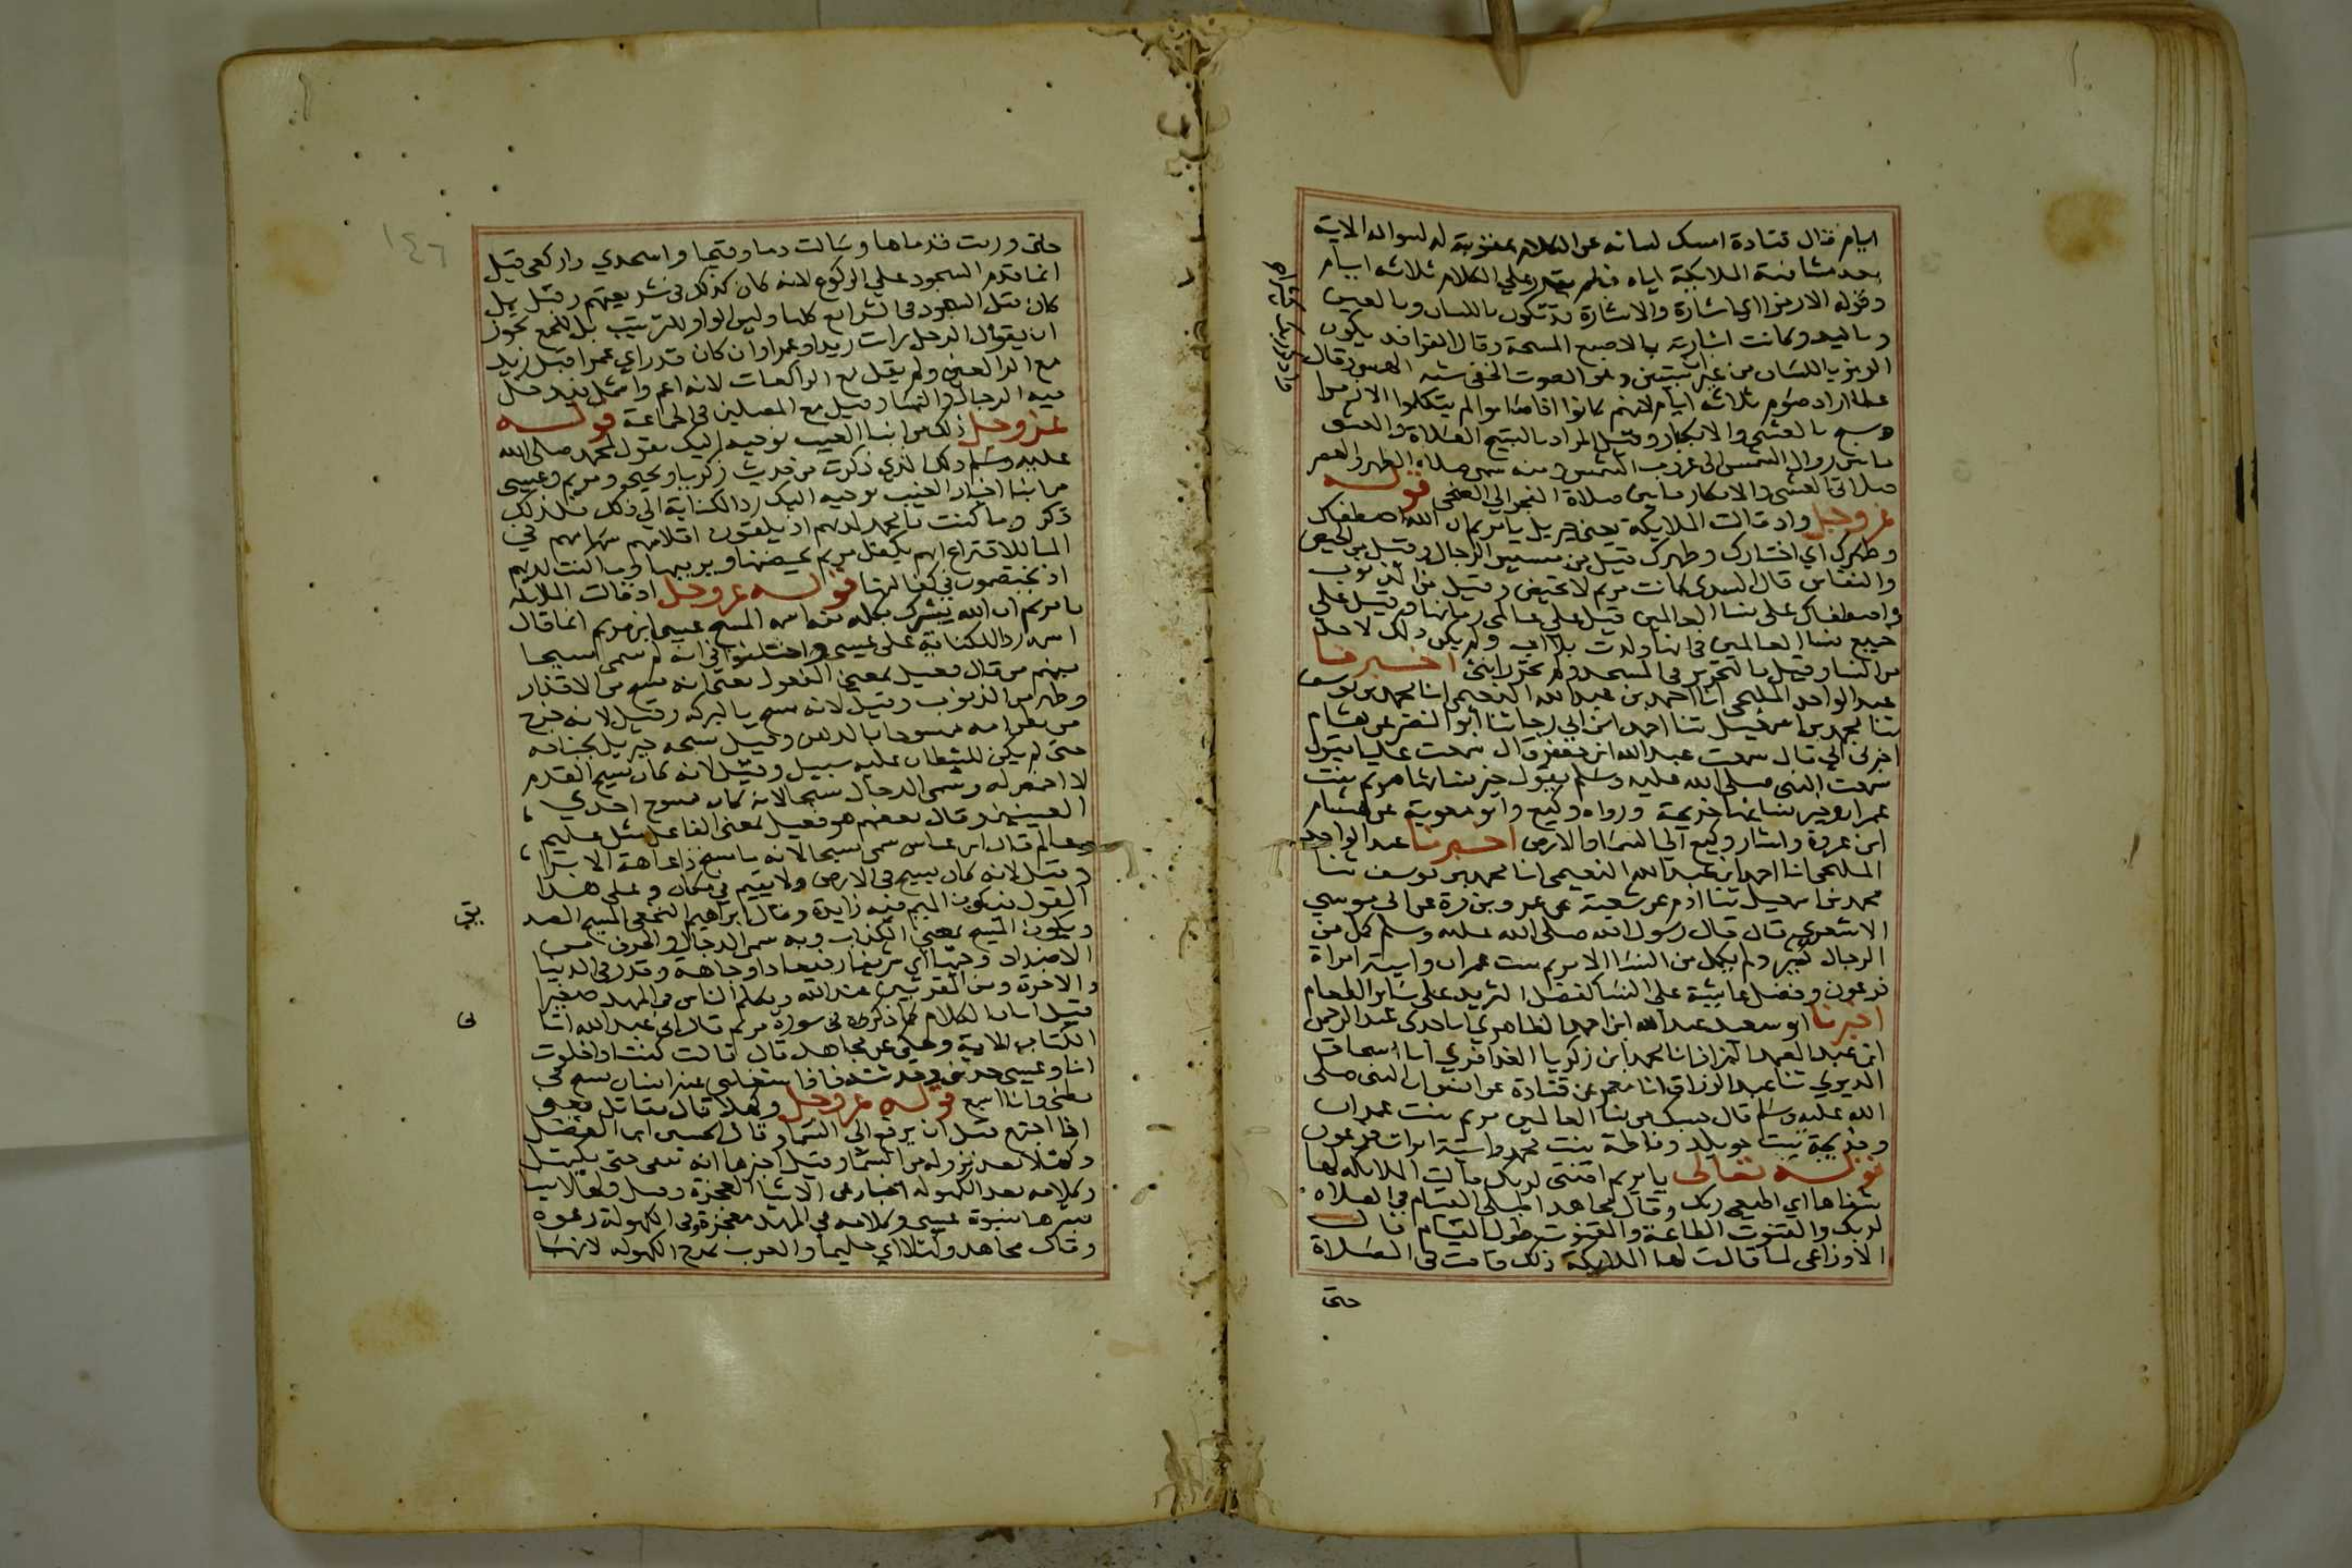 ايام قال قتادة امسك لسانه عن الكلام عقوبة له لسواله الاية
بعد مشافهة الملايكة اياه فلم يقدر علي الكلام ثلاثه ايام
وقوله الارمزا اي اشارة والاشارة قد تكون باللسان وبالعين
وباليد وكانت اشارته بالاصبع المسبحة وقال الفرا قد يكون
الرمز باللسان من غير ان يبين وهو الصوت الخفي شبه الهمس وقال
عطا اراد صوم ثلاثه ايام لانهم كانوا اذا صاموا لم يتكلموا الا رمزا
واذكر ربك كثيرا
وسبح بالعشي والابكار وقيل المراد بالتسبيح الصلاة والعشي
ما بين زوال الشمس الى غروب الشمس ومنه سمى صلاة الظهر والعصر
صلاتى العشى والابكار ما بين صلاة الفجر الي الضحى قوله
عز وجل واذ قالت الملايكة يعنى جبريل يا مريم ان الله اصطفاك
وطهرك اي اختارك وطهرك قيل من مسيس الرجال وقيل من الحيض
والنفاس قال السدى كانت مريم لا تحيض وقيل من الذنوب
واصطفاك على نسا العالمين قيل علي عالمى زمانها وقيل علي
جميع نسا العالمين في انها ولدت بلا اب ولم يكن ذلك لاحد
من النسا وقيل بالتحرير في المسجد ولم تحرر انثى اخبرنا
عبد الواحد المليحى انا احمد بن عبد الله النعيمى انا محمد بن يوسف
ثنا محمد بن اسمعيل ثنا احمد ابن ابي رجا ثنا ابو النضر عن هشام
اخبرنى ابي قال سمعت عبد الله ابن جعفر قال سمعت عليا يقول
سمعت النبى صلى الله عليه وسلم يقول خير نسايها مريم بنت
عمران وخير نسايها خديجة ورواه وكيع وابو معوية عن هشام
ابن عروة واشار وكيع الي السما والارض اخبرنا عبد الواحد
المليحى انا احمد ابن عبد الله النعيمى انا محمد بن يوسف ثنا
محمد بن اسمعيل ثنا ادم عن شعبة عن عمرو بن مرة عن ابى موسي
الاشعرى قال قال رسول الله صلى الله عليه وسلم كمل من
الرجال كثير ولم يكمل من النسا الا مريم بنت عمران واسية امراة
فرعون وفضل عايشة على النسا كفضل الثريد على ساير الطعام
اخبرنا ابو سعيد عبد الله ابن احمد الطاهري انا جدى عبد الرحمن
ابن عبد الصمد البزاز انا محمد ابن زكريا العذافري انا اسحاق
الدبري ثنا عبد الرزاق انا معمر عن قتادة عن انس ان النبى صلى
الله عليه وسلم قال حسبك من نسا العالمين مريم بنت عمران
وخديجة بنت خويلد وفاطمة بنت محمد واسية امرات فرعون
قوله تعالى يا مريم اقنتى لربك قالت الملايكه لها
شفاها اي اطيعى ربك وقال مجاهد اطيلى القيام في الصلاة
لربك والقنوت الطاعة والقنوت طول القيام قال
الاوزاعى لما قالت لها الملايكة ذلك قامت فى الصلاة
حتى
١٤٦
حتى ورمت قدماها وسالت دما وقيحا واسجدي واركعى قيل
انما قدم السجود علي الركوع لانه كان كذلك في شريعتهم وقيل بل
كان قبل السجود في الشرايع كلها وليس الواو للترتيب بل للجمع يجوز
ان يقول الرجل رايت زيدا وعمرا وان كان قد راي عمرا قبل زيد
مع الراكعين ولم يقل مع الراكعات لانه اعم واشمل يدخل
فيه الرجال والنسا وقيل مع المصلين فى الجماعة قوله
عز وجل ذلك من انبا الغيب نوحيه اليك يقول لمحمد صلى الله
عليه وسلم ذلك الذي ذكرت من حديث زكريا ويحيى ومريم وعيسى
من انبا اخبار الغيب نوحيه اليك رد الكناية الي ذلك فلذلك
ذكر وما كنت يا محمد لديهم اذ يلقون اقلامهم سهامهم في
الما للاقتراع ايهم يكفل مريم يحضنها ويربيها وما كنت لديهم
اذ يختصمون في كفالتها قوله عز وجل اذ قالت الملايكة
يا مريم ان الله يبشرك بكلمة منه اسمه المسيح عيسى ابن مريم انما قال
اسمه رد الكناية على عيسى واختلفوا في انه لم سمى مسيحا
منهم من قال فعيل بمعنى المفعول يعنى انه مسح من الاقذار
وطهر من الذنوب وقيل لانه مسح بالبركة وقيل لانه خرج
من بطن امه ممسوحا بالدهن وقيل مسحه جبريل بجناحه
حتى لم يكن للشيطان عليه سبيل وقيل لانه كان مسيح القدم
لا اخمص له وسمى الدجال مسيحا لانه كان ممسوح احدي
العينين وقال بعضهم هو فعيل بمعنى الفاعل مثل عليم
وعالم قال ابن عباس سمى مسيحا لانه ما مسح ذا عاهة الا برا
وقيل لانه كان يسيح فى الارض ولا يقيم في مكان وعلى هذا
القول تكون الميم فيه زايدة وقال ابراهيم النخعى المسيح الصديق
ويكون المسيح بمعنى الكذاب وبه سمى الدجال والحرف من
الاضداد وجيها اي شريفا رفيعا ذا وجاهة وقدر فى الدنيا
والاخرة ومن المقربين عند الله ويكلم الناس فى المهد صغيرا
قبل اوان الكلام كما ذكره فى سورة مريم قال انى عبد الله اتانى
الكتاب الاية وحكى عن مجاهد قال قالت كنت اذا خلوت
انا وعيسى حدثنى وحدثته فاذا شغلنى عنه انسان سبح فى
بطنى وانا اسمع قوله عز وجل وكهلا قال مقاتل يعنى
اذا اجتمع قبل ان يرفع الى السما وقال الحسين ابن الفضل
وكهلا بعد نزوله من السما وقيل اخبرها انه يبقى حتى يكتهل
وكلامه بعد الكهولة اخبار عن الاشيا المعجزة وقيل وكهلا نبيا
بشرها بنبوة عيسى وكلامه في المهد معجزة وفى الكهولة دعوة
وقال مجاهد وكهلا اي حليما والعرب تمدح الكهولة لانها